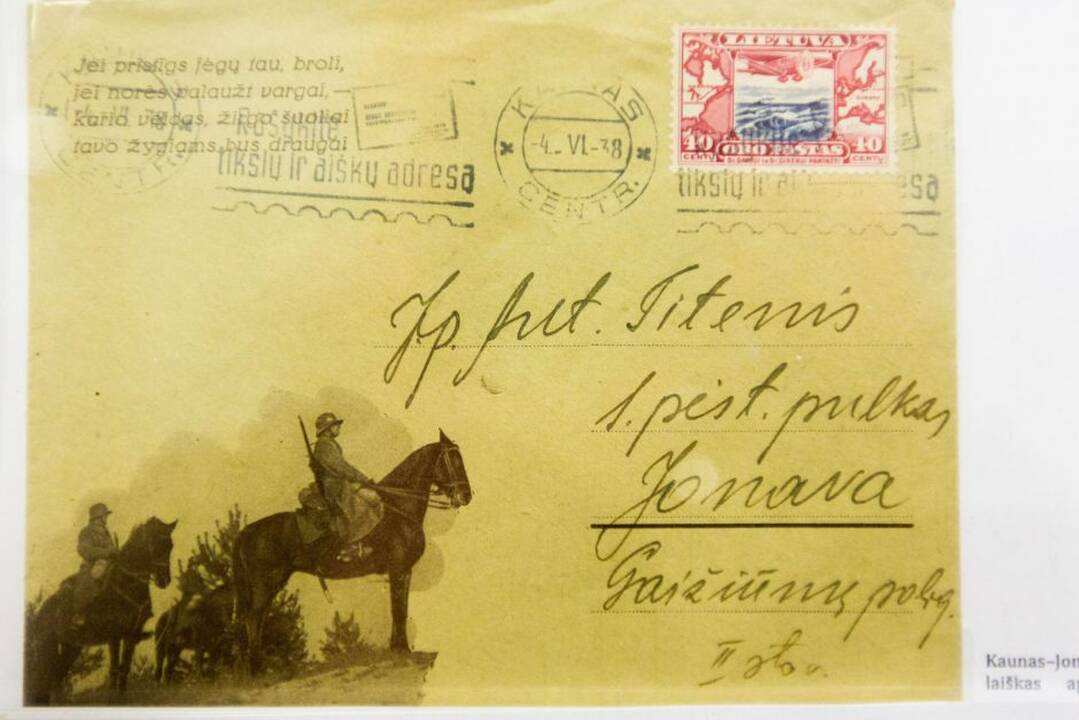 Jei pristigs jėgų tau, broli,
jei norės palaužt vargai, —
kario veidas, žirgo šuoliai
tavo žygiams bus draugai
Rašykite
tikslų ir aiškų adresą
KAUNAS
-4. VI.-38
CENTR.
LIETUVA
40 ORO PAŠTAS 40
CENTŲ CENTŲ
tikslų ir
Jp. Titenis
1. pėst. pulkas
Jonava
Gaižiūnų polig.
II
Kaunas–Jon
laiškas ap